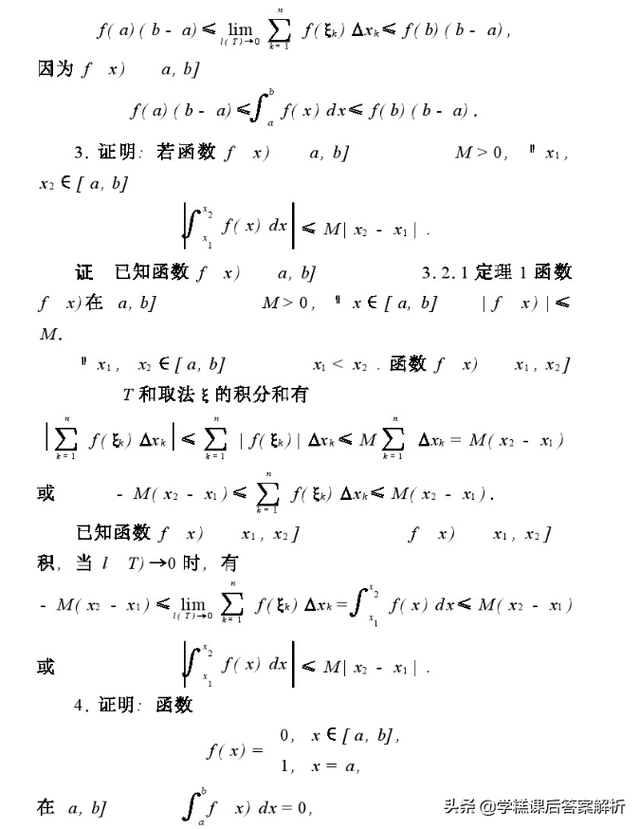 f(a)(b-a)≤lim_{l(T)→0} ∑_{k=1}^{n} f(ξₖ)Δxₖ≤f(b)(b-a),
因为 f x) a, b]
f(a)(b-a)≤∫_a^b f(x)dx≤f(b)(b-a).
3. 证明: 若函数 f x) a, b] M>0, ∥ x₁,
x₂∈[a, b]
|∫_{x₁}^{x₂} f(x)dx|≤M|x₂-x₁|.
证 已知函数 f x) a, b] 3.2.1 定理 1 函数
f x)在 a, b] M>0, ∥ x∈[a, b] |f x)|≤
M.
∥ x₁, x₂∈[a, b] x₁<x₂. 函数 f x) x₁, x₂]
T 和取法 ξ 的积分和有
|∑_{k=1}^{n} f(ξₖ)Δxₖ|≤∑_{k=1}^{n} |f(ξₖ)|Δxₖ≤M∑_{k=1}^{n} Δxₖ=M(x₂-x₁)
或 -M(x₂-x₁)≤∑_{k=1}^{n} f(ξₖ)Δxₖ≤M(x₂-x₁).
已知函数 f x) x₁, x₂] f x) x₁, x₂]
积, 当 l T)→0 时, 有
-M(x₂-x₁)≤lim_{l(T)→0} ∑_{k=1}^{n} f(ξₖ)Δxₖ=∫_{x₁}^{x₂} f(x)dx≤M(x₂-x₁)
或 |∫_{x₁}^{x₂} f(x)dx|≤M|x₂-x₁|.
4. 证明: 函数
f(x)= 0, x∈[a, b],
1, x=a,
在 a, b] ∫_a^b f x)dx=0,
头条 @学糕课后答案解析